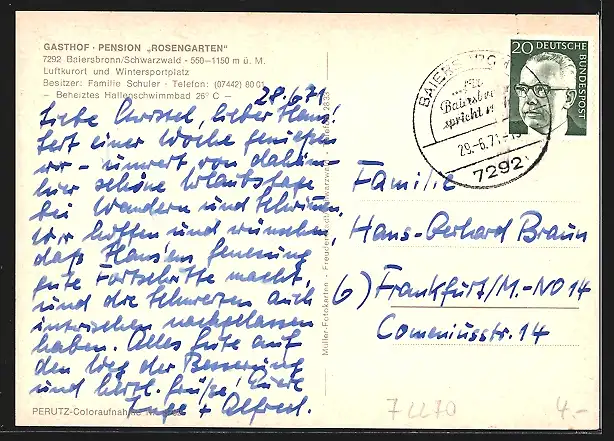 GASTHOF · PENSION „ROSENGARTEN"
7292 Baiersbronn/Schwarzwald · 550—1150 m ü. M.
Luftkurort und Wintersportplatz
Besitzer: Familie Schuler · Telefon: (07442) 80 01
— Beheiztes Hallenschwimmbad 26° C —
28.6.71
Liebe Christel, lieber Hans!
Seit einer Woche genießen
wir – unweit von daheim –
hier schöne Urlaubstage
bei Wandern und Schwimmen.
Wir hoffen und wünschen,
daß Hansens Genesung
gute Fortschritte macht,
und die Schmerzen auch
inzwischen nachgelassen
haben. Alles Gute auf
den Weg der Besserung
und herzl. Grüße! Eure
Inge + Alfred.
PERUTZ-Coloraufnahme
Müller-Fotokarten · Freudenstadt/Schwarzwald
20 DEUTSCHE BUNDESPOST
BAIERSBRONN
spricht
29.-6.71
7292
Familie
Hans-Gerhard Braun
6) Frankfurt/M.-NO 14
Comeniusstr. 14
72270
4.-